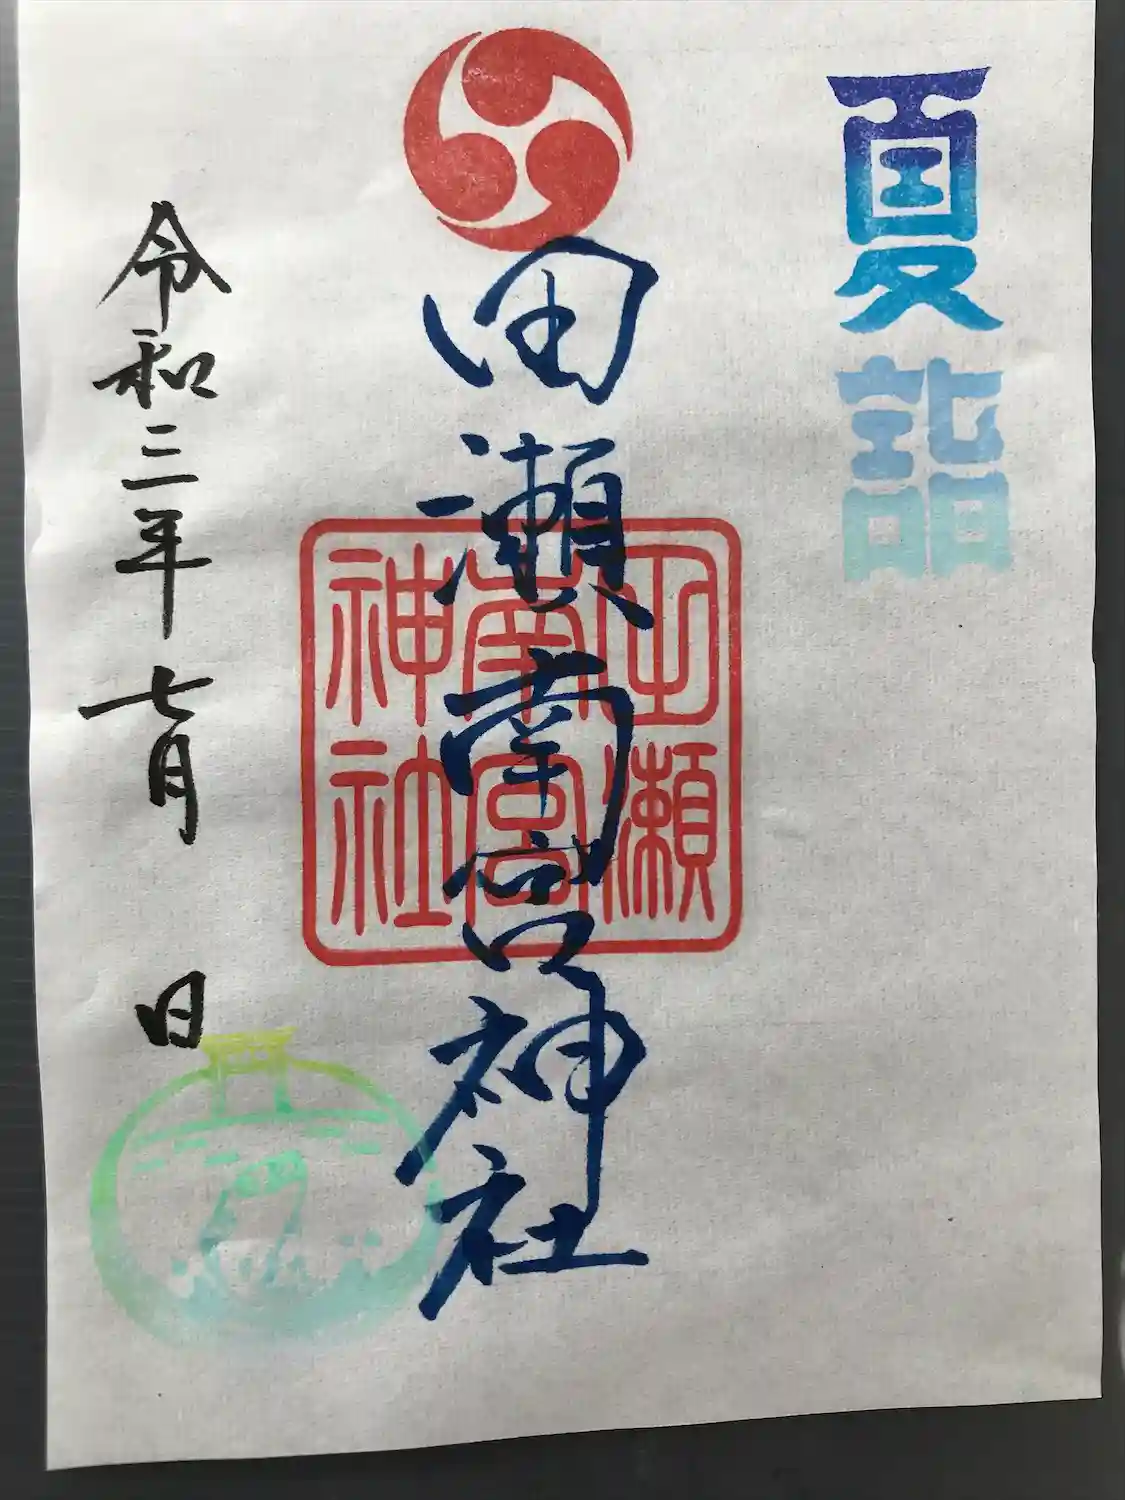 夏詣
田瀬南宮神社
田瀬
南宮
神社
令和三年七月 日